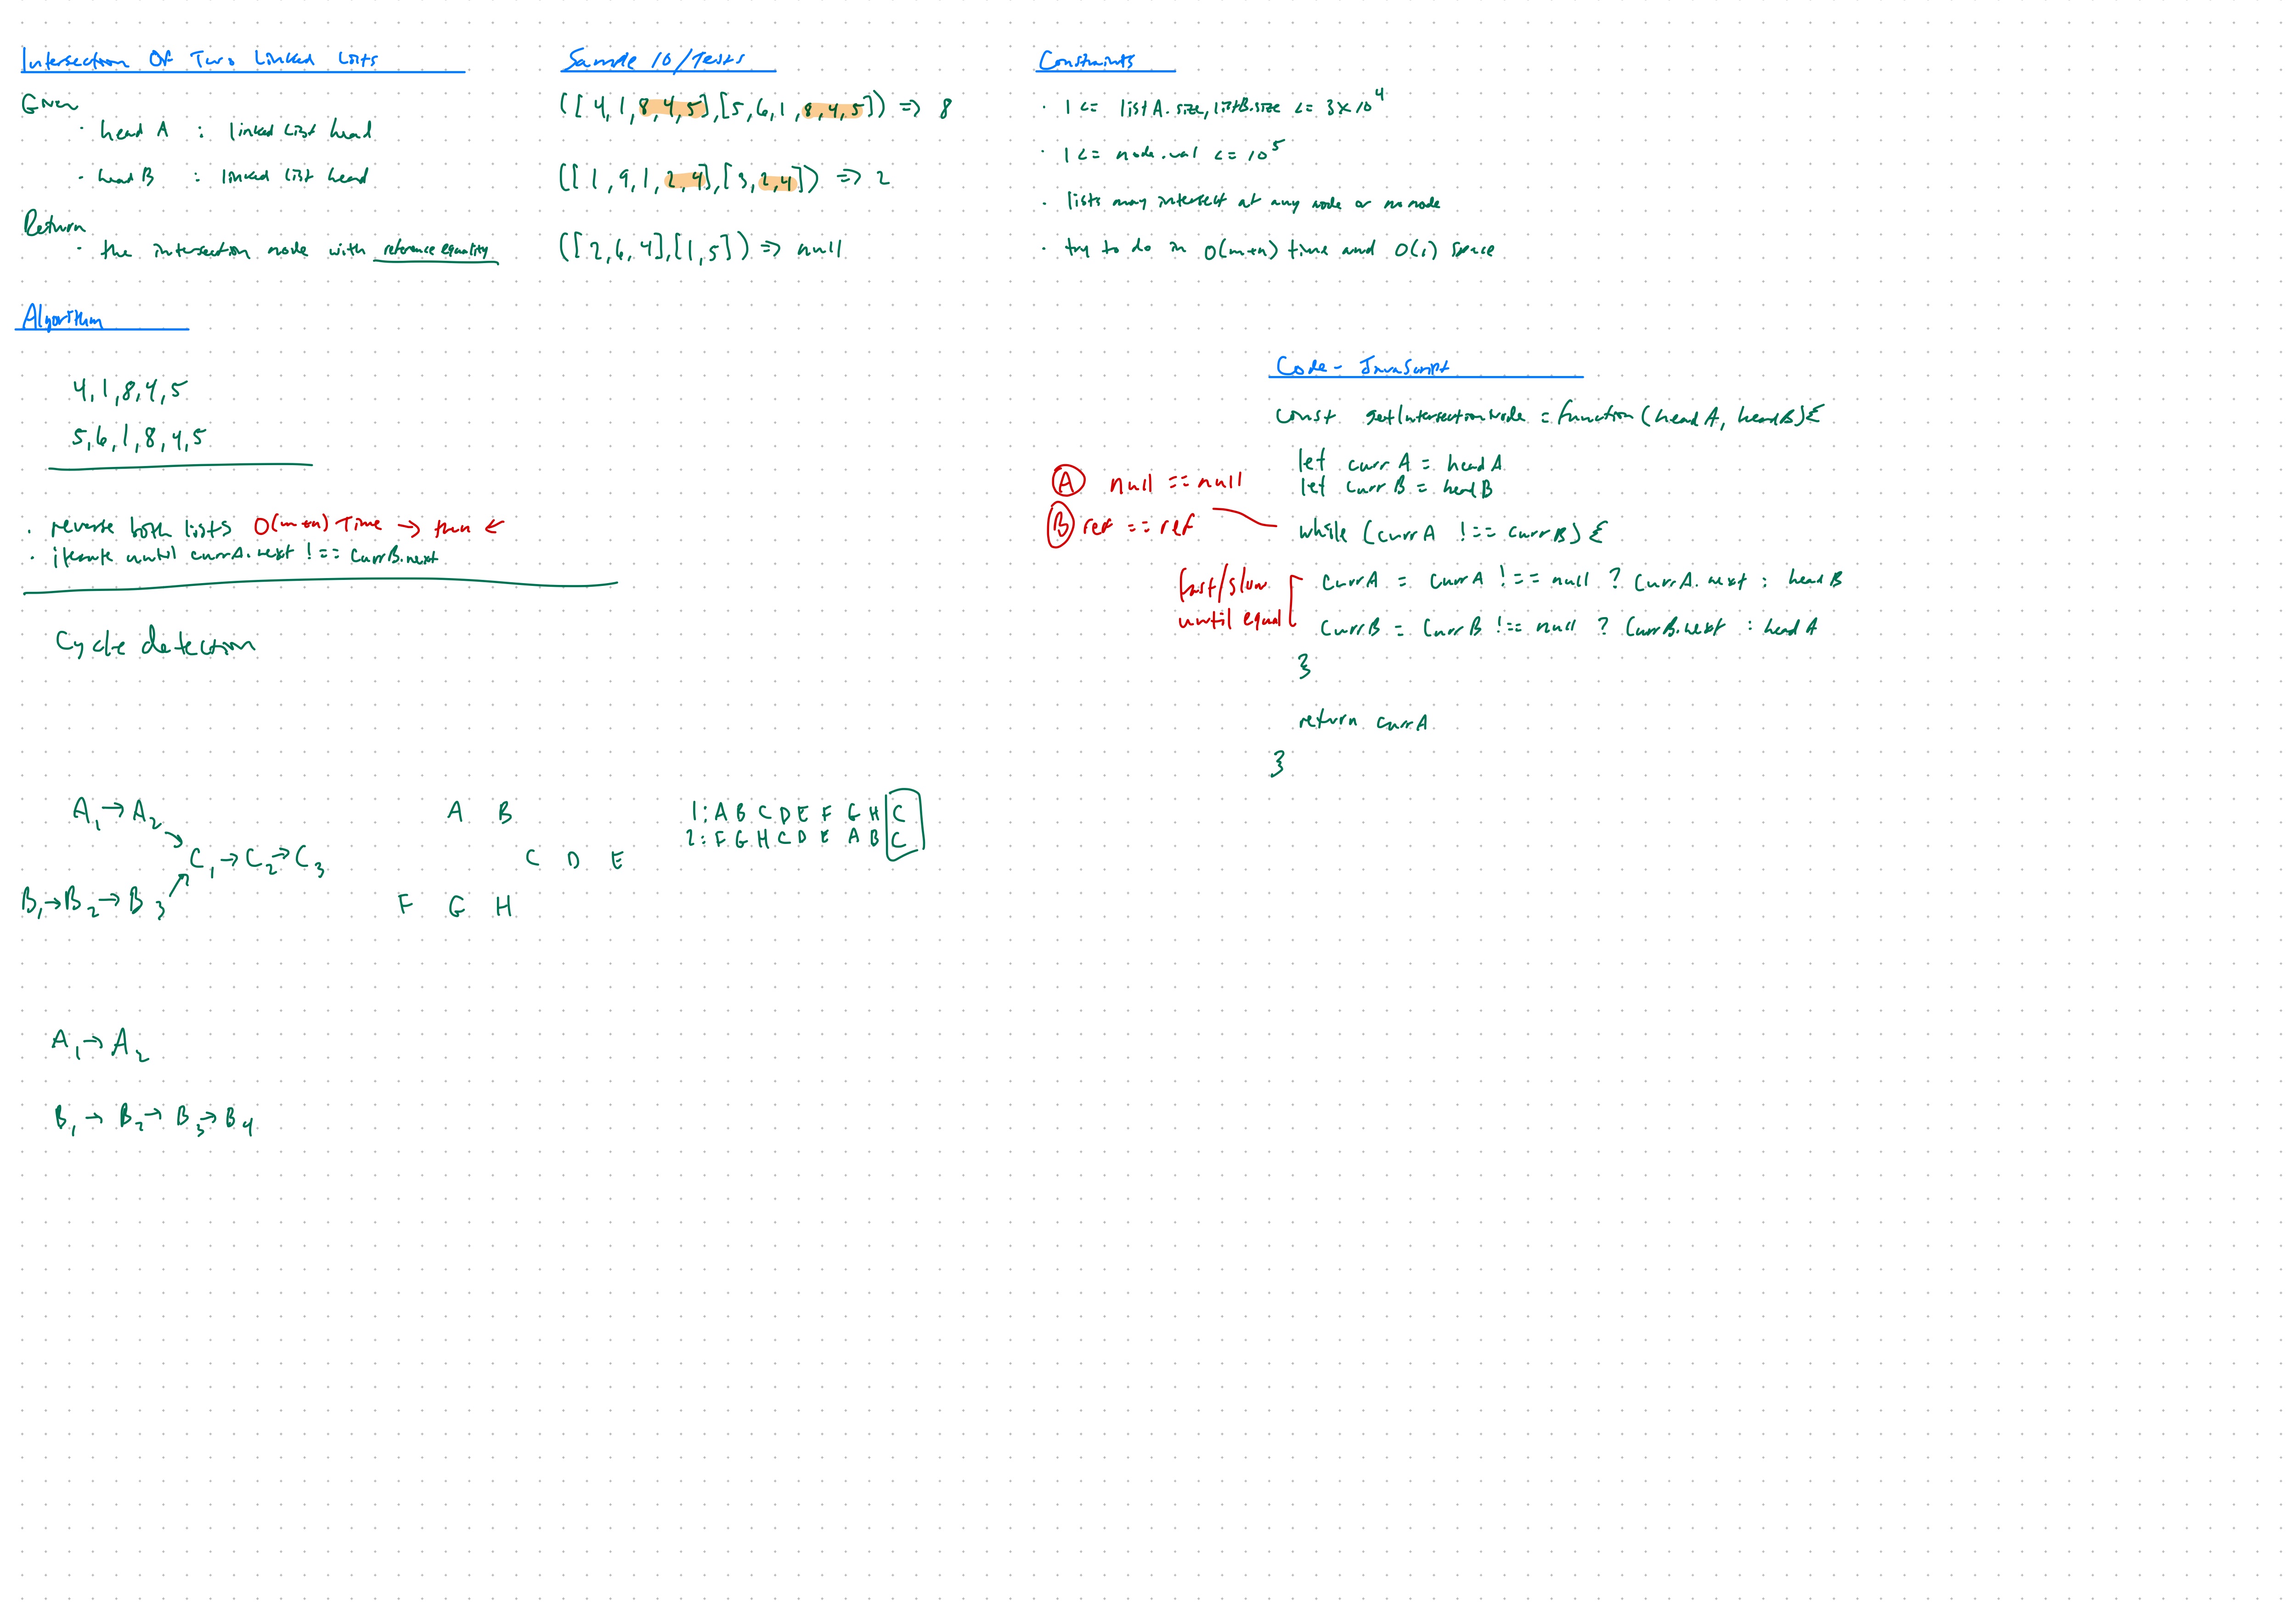 Intersection Of Two Linked Lists
Given
· head A : linked list head
· head B : linked list head
Return
· the intersection node with reference equality
Sample IO/Tests
([4,1,8,4,5],[5,6,1,8,4,5]) => 8
([1,9,1,2,4],[3,2,4]) => 2
([2,6,4],[1,5]) => null
Constraints
· 1 <= listA.size, listB.size <= 3 x 10^4
· 1 <= node.val <= 10^5
· lists may intersect at any node or no node
· try to do in O(m+n) time and O(1) space
Algorithm
4,1,8,4,5
5,6,1,8,4,5
· reverse both lists O(m+n) Time → then ←
· iterate until currA.next !== currB.next
Cycle detection
A₁ → A₂
C₁ → C₂ → C₃
B₁ → B₂ → B₃
A B
C D E
F G H
1: A B C D E F G H C
2: F G H C D E A B C
A₁ → A₂
B₁ → B₂ → B₃ → B₄
Code - JavaScript
const getIntersectionNode = function(headA, headB){
let currA = headA
let currB = headB
while (currA !== currB) {
currA = currA !== null ? currA.next : headB
currB = currB !== null ? currB.next : headA
}
return currA
}
A null == null
B ref == ref
fast/slow
until equal